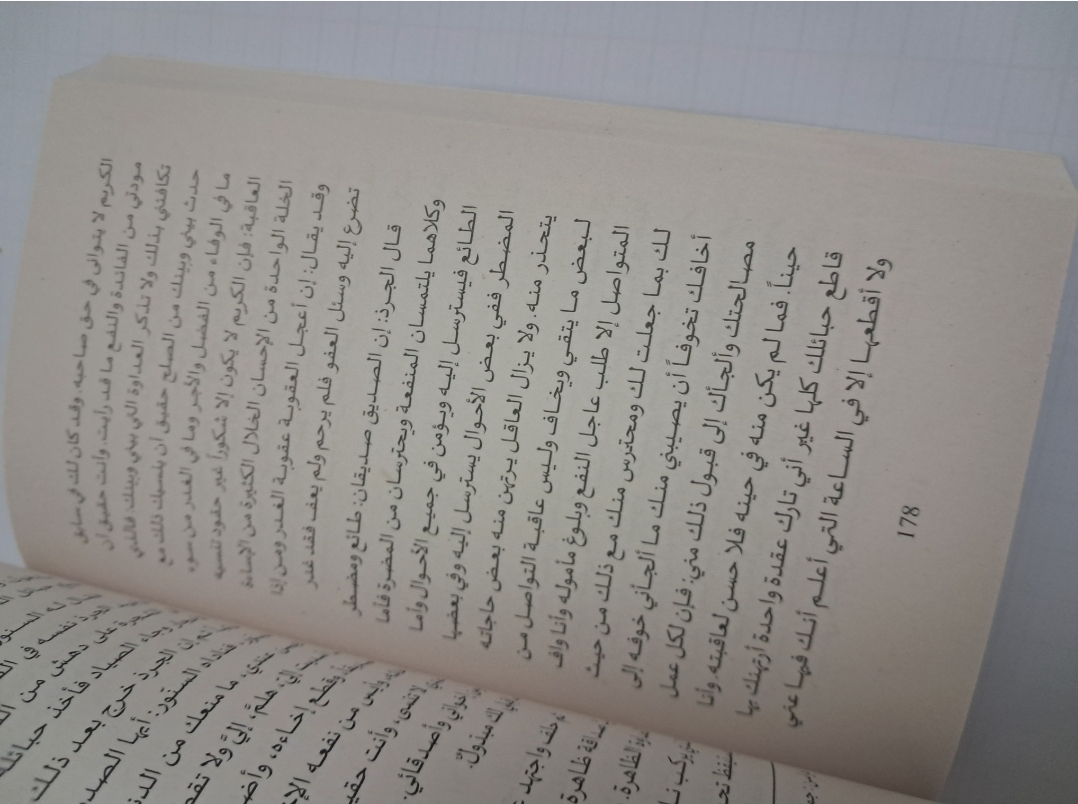 الكريم لا يتوانى في حق صاحبه. وقد كان لك في سابق
مودتي من الفائدة والنفع ما قد رأيت. وأنت حقيق أن
تكافئني بذلك ولا تذكر العداوة التي بيني وبينك. فالذي
حدث بيني وبينك من الصلح حقيق أن ينسيك ذلك مع
ما في الوفاء من الفضل والأجر وما في الغدر من سوء
العاقبة: فإن الكريم لا يكون إلا شكوراً غير حقود تنسيه
الخلة الواحدة من الإحسان الخلال الكثيرة من الإساءة
وقد يقال: إن أعجل العقوبة عقوبة الغدر ومن إذا
تضرع إليه وسئل العفو فلم يرحم ولم يعف فقد غدر
قال الجرذ: إن الصديق صديقان: طائع ومضطر
وكلاهما يلتمسان المنفعة ويحترسان من المضرة فأما
الطائع فيسترسل إليه ويؤمن في جميع الأحوال وأما
المضطر ففي بعض الأحوال يسترسل إليه وفي بعضها
يتحذر منه. ولا يزال العاقل يرتهن منه بعض حاجاته
لبعض ما يتقي ويخاف وليس عاقبة التواصل من
المتواصل إلا طلب عاجل النفع وبلوغ مأموله وأنا واف
لك بما جعلت لك ومحترس منك مع ذلك من حيث
أخافك تخوفاً أن يصيبني منك ما ألجأني خوفه إلى
مصالحتك وألجأك إلى قبول ذلك مني: فإن لكل عمل
حيناً. فما لم يكن منه في حينه فلا حسن لعاقبته. وأنا
قاطع حبائلك كلها غير أني تارك عقدة واحدة أرتهنك بها
ولا أقطعها إلا في الساعة التي أعلم أنك فيها عني
178
له السنور
الجرذ نفسه في
على دهش من
وجاء الصياد فأخذ حبائله
ثم إن الجرذ خرج بعد ذلك
فناداه السنور: أيها الصد
ما منعك من الدن
هلم إلي ولا تقط
وقطع إخاءه، وأض
وأيس من نفعه
وأنت حقيق
وأصدقائي.
لك مبذول.
واجتهد
ظاهرة
الظاهرة.